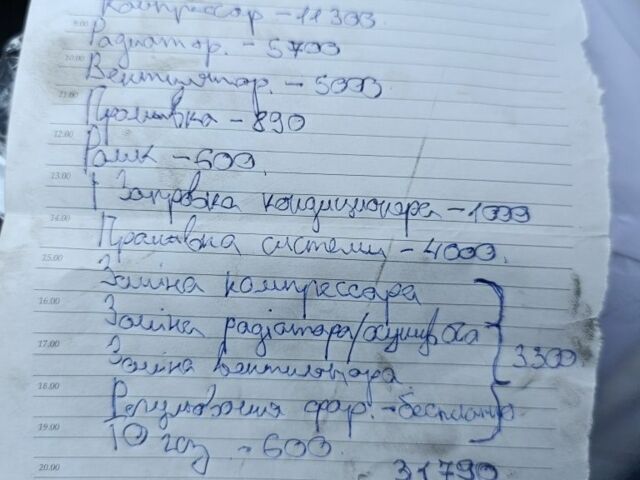 Компрессор - 11300
9.00
Радиатор. - 5700
10.00
Вентилятор. - 5000
11.00
Промывка - 890
12.00
Ролик - 600.
13.00
Заправка кондиционера - 1000
14.00
Промывка системи - 4000.
15.00
Заміна компрессора
16.00
Заміна радіатора/осушувача
17.00
3300
Заміна вентилятора.
18.00
фар. - бесплатно
19.00
ТО газ - 600.
20.00
31790